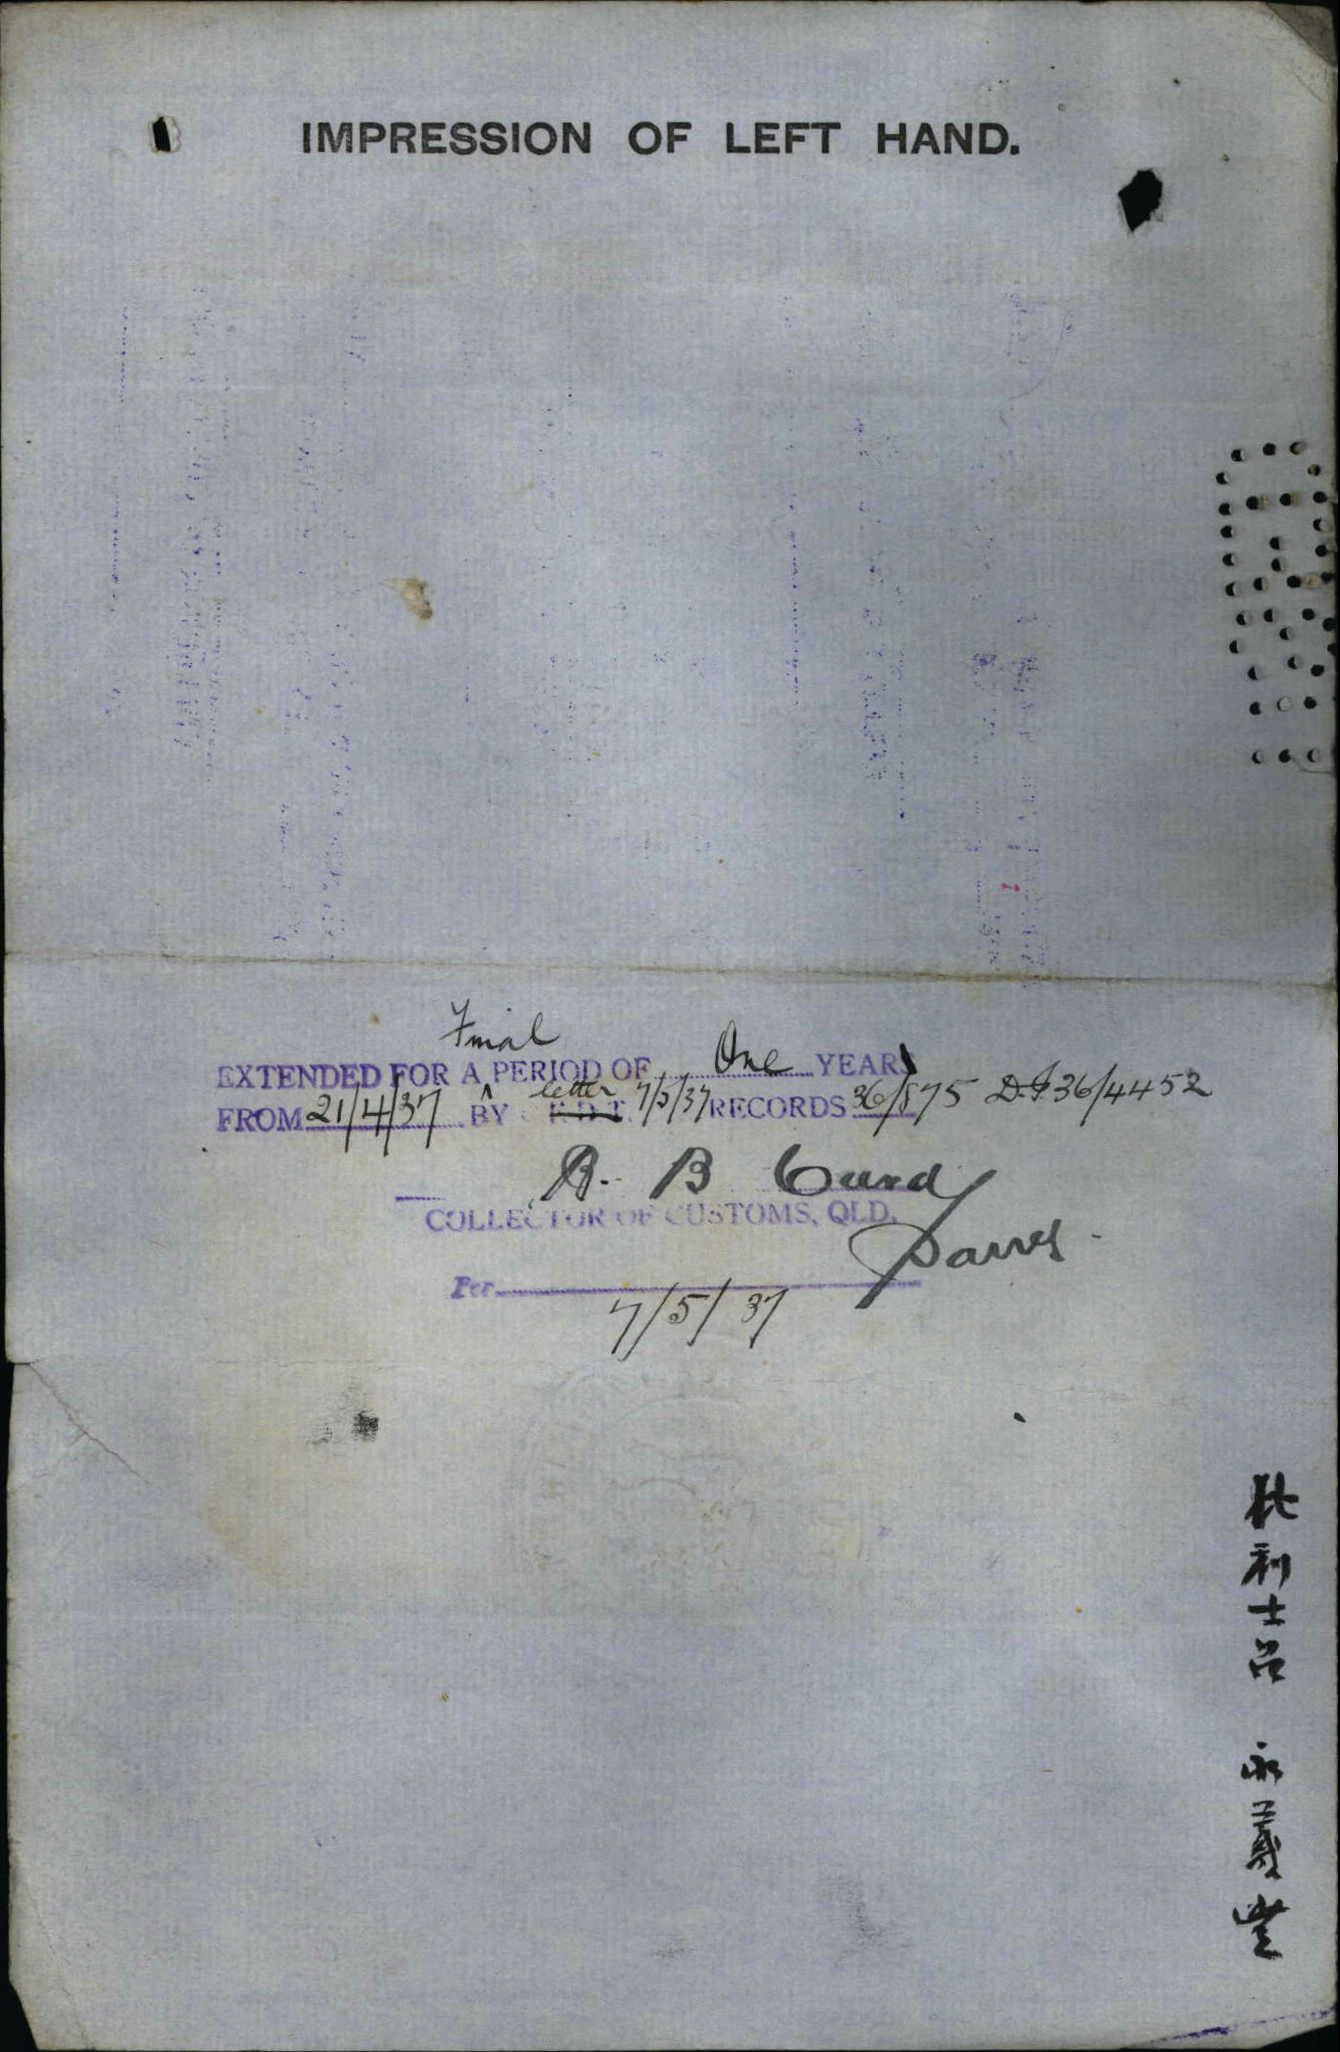 IMPRESSION OF LEFT HAND.
Final
EXTENDED FOR A PERIOD OF One YEAR
FROM 21/4/37 BY letter 7/5/37 RECORDS 36/875 D.I 36/4452
R. B Curd
COLLECTOR OF CUSTOMS, QLD.
Per
7/5/37
杜利士呂 永義豐